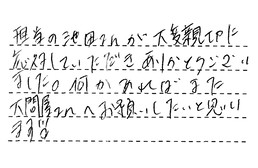 担当の池田さんが大変親切に
応対していただきありがとうござい
ました。何かあればまた
大問屋さんへお願いしたいと思い
ます。